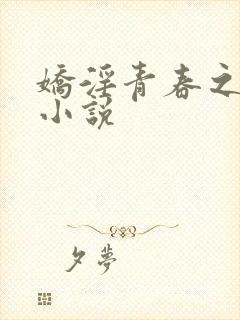 嬌淫青春之
小說
夕夢